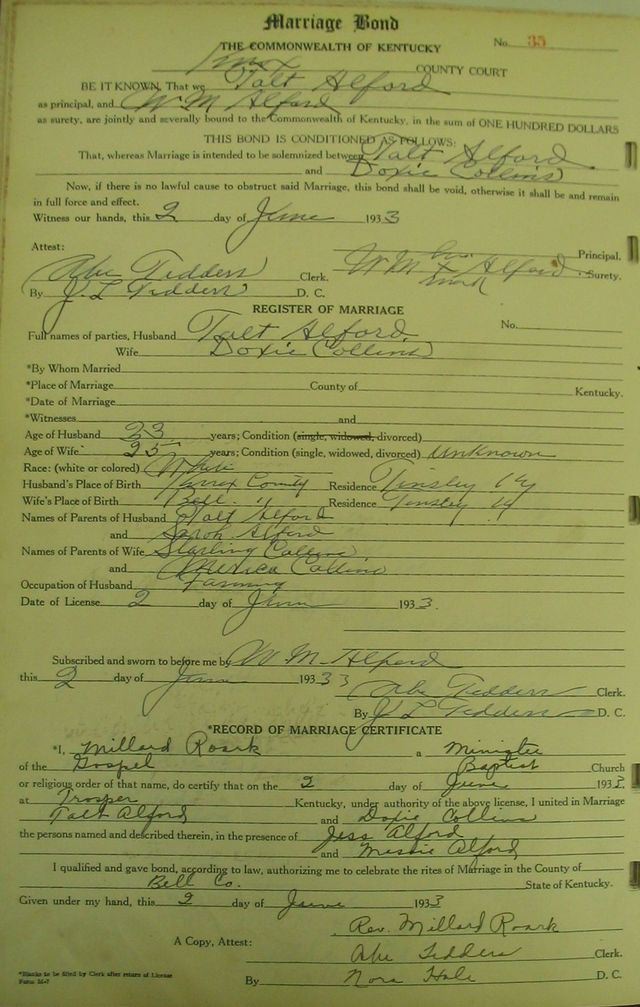 Marriage Bond
No. 35
THE COMMONWEALTH OF KENTUCKY
Knox COUNTY COURT
BE IT KNOWN, That we Talt Alford
as principal, and W M Alford
as surety, are jointly and severally bound to the Commonwealth of Kentucky, in the sum of ONE HUNDRED DOLLARS
THIS BOND IS CONDITIONED AS FOLLOWS:
That, whereas Marriage is intended to be solemnized between Talt Alford
and Doxie Collins
Now, if there is no lawful cause to obstruct said Marriage, this bond shall be void, otherwise it shall be and remain
in full force and effect.
Witness our hands, this 2 day of June 1933
Attest:
Principal.
Abe Tedders Clerk. W M his x mark Alford Surety.
By J. L Tedders D. C.
REGISTER OF MARRIAGE
Full names of parties, Husband Talt Alford No.
Wife Doxie Collins
*By Whom Married
*Place of Marriage County of Kentucky.
*Date of Marriage
*Witnesses and
Age of Husband 23 years; Condition (single, widowed, divorced)
Age of Wife 25 years; Condition (single, widowed, divorced) unknown
Race: (white or colored) White
Husband's Place of Birth County Residence Tinsley Ky
Wife's Place of Birth Bell " Residence Tinsley Ky
Names of Parents of Husband Talt Alford
and Sarah Alford
Names of Parents of Wife Starling Collins
and Collins
Occupation of Husband Farming
Date of License 2 day of June 1933.
Subscribed and sworn to before me by W M Alford
this 2 day of June 1933
Abe Tedders Clerk.
By J L Tedders D. C.
*RECORD OF MARRIAGE CERTIFICATE
*I, Millard Roark a Minister
of the Gospel Baptist Church
or religious order of that name, do certify that on the 2 day of June 1933
at Trosper Kentucky, under authority of the above license, I united in Marriage
Talt Alford and Doxie Collins
the persons named and described therein, in the presence of Jess Alford
and Messie Alford
I qualified and gave bond, according to law, authorizing me to celebrate the rites of Marriage in the County of
Bell Co. State of Kentucky.
Given under my hand, this 2 day of June 1933
Rev. Millard Roark
A Copy, Attest: Abe Tedders Clerk.
*Blanks to be filled by Clerk after return of License
Form M-7
By Nora Hale D. C.